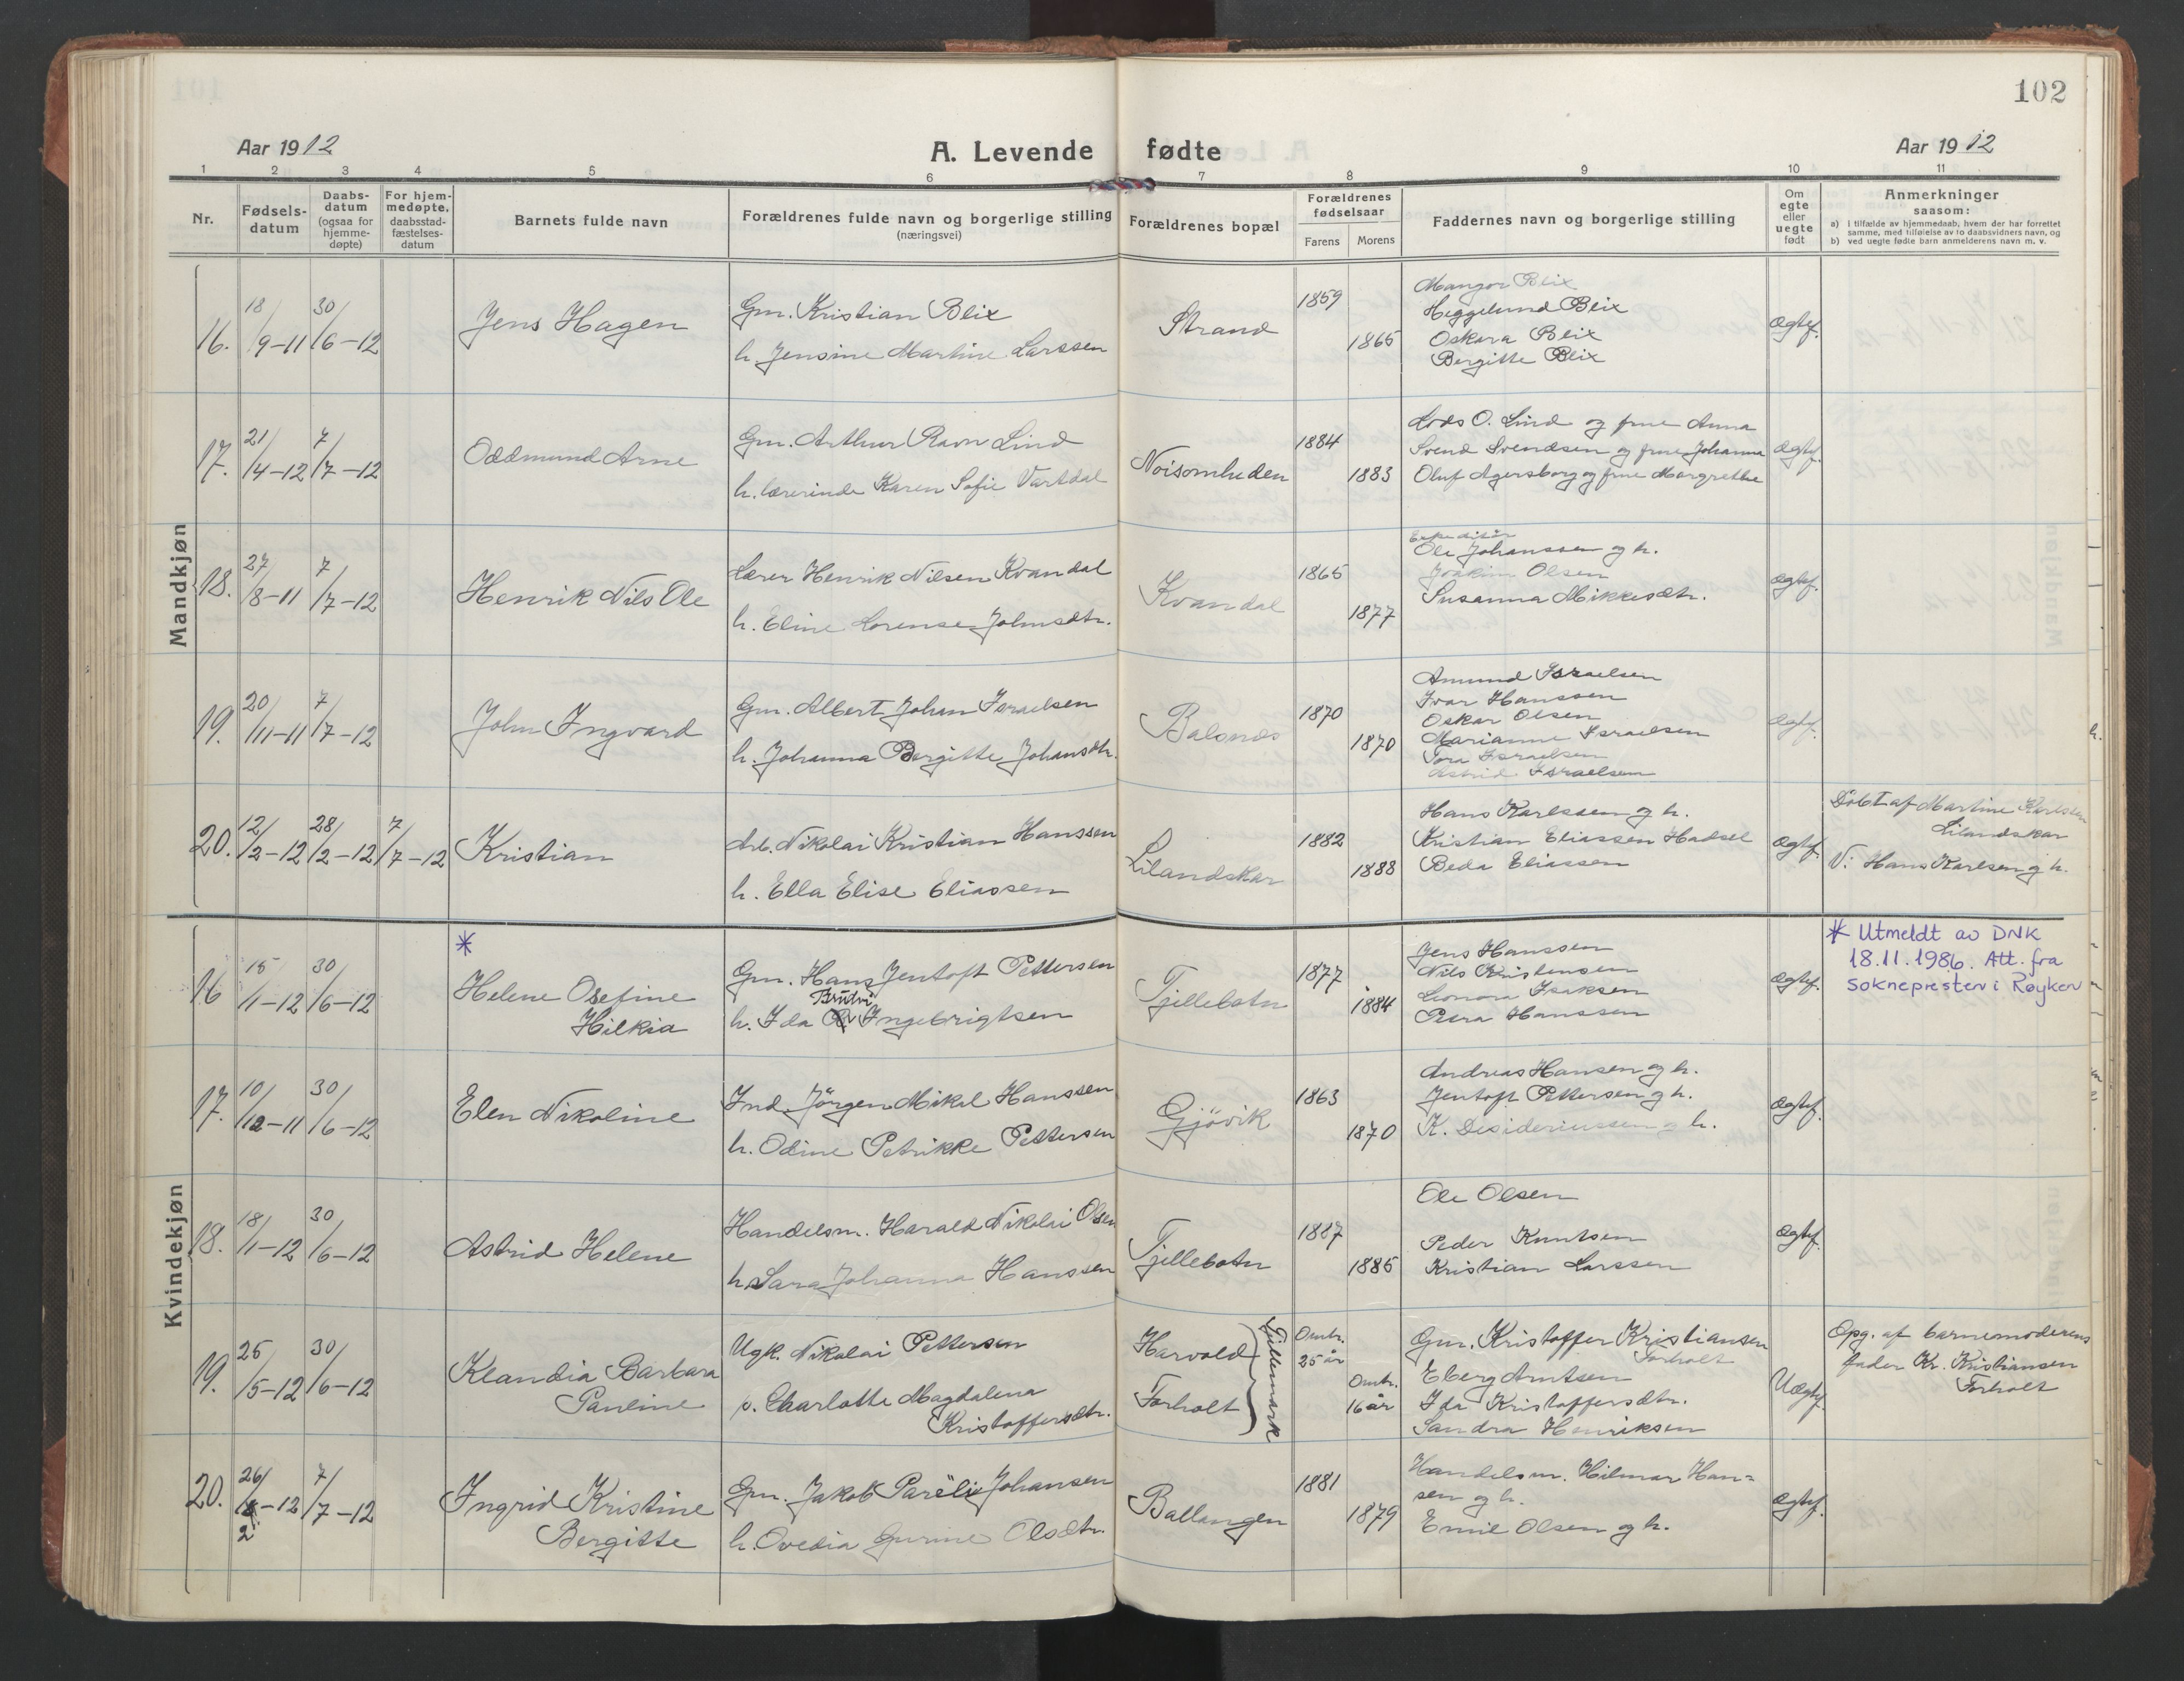 102
Aar 1912
A. Levende fødte
Aar 1912
1 2 3 4 5 6 7 8 9 10 11
Nr.
Fødsels-
datum
Daabs-
datum
(ogsaa for
hjemme-
døpte)
For hjem-
medøpte,
daabsstad-
fæstelses-
datum
Barnets fulde navn
Forældrenes fulde navn og borgerlige stilling
(næringsvei)
Forældrenes bopæl
Forældrenes
fødselsaar
Farens Morens
Faddernes navn og borgerlige stilling
Om
egte
eller
uegte
født
Anmerkninger
saasom:
a) i tilfælde av hjemmedaab, hvem der har forrettet
samme, med tilføielse av to daabsvidners navn, og
b) ved uegte fødte barn anmelderens navn m. v.
Mandkjøn
16. 18/9-11 30/6-12
Jens Hagen
Gm. Kristian Blix
h. Jensine Martine Larssen
Strand
1859
1865
Mangor Blix
Heggelund Blix
Oskara Blix
Bergitte Blix
ægtef.
17. 21/4-12 7/7-12
Oddmund Arne
Gm. Arthur Ravn Lind
h. lærerinde Karen Sofie Vartdal
Noisomheden
1884
1883
Lods O. Lind og frue Anna
Svend Svendsen og frue Johanna
Oluf Agersborg og frue Margrethe
ægtf.
18. 27/8-11 7/7-12
Henrik Nils Ole
Lærer Henrik Nilsen Kvandal
h. Eline Lorense Johnsdtr.
Kvandal
1865
1877
Ekspeditør
Ole Johanssen og h.
Joakim Olsen
Susanna Mikkelsdtr.
ægtef.
19. 20/11-11 7/7-12
John Ingvard
Gm. Albert Johan Israelsen
h. Johanna Bergitte Johansdtr.
Balsnes
1870
1870
Amund Israelsen
Ivar Hanssen
Oskar Olsen
Marianne Israelsen
Tora Israelsen
Astrid Israelsen
ægtf.
20. 12/2-12 28/2-12 7/7-12
Kristian
Arb. Nikolai Kristian Hanssen
h. Ella Elise Eliassen
Lilandskar
1882
1888
Hans Karlssen og h.
Kristian Eliassen Hadsel
Beda Eliassen
ægtf.
Döbt af Martine Karlssen
Lilandskar
V: Hans Karlsen og h.
Kvindekjøn
16 15/1-12 30/6-12
*
Helene Osefine
Hilkia
Gm. Hans Jentoft Pettersen
Brudvi
h. Ida Ingebrigtsen
Tjellebotn
1877
1884
Jens Hanssen
Nils Kristensen
Leonora Isaksen
Petra Hanssen
ægtef.
* Utmeldt av DNK
18.11.1986. Att. fra
soknepresten i Røyken
17. 10/12-11 30/6-12
Elen Nikoline
Ind. Jörgen Mikal Hanssen
h. Odine Petrikke Pettersen
Gjövik
1863
1870
Andreas Hansen og h.
Jentoft Pettersen og h.
K. Desideriussen og h.
ægtef.
18. 18/1-12 30/6-12
Astrid Helene
Handelsm. Harald Nikolai Olsen
h. Sara Johanna Hanssen
Tjellebotn
1887
1885
Ole Olsen
Peder Knutsen
Kristian Larssen
ægtef.
19. 25/5-12 30/6-12
Klandia Barbara
Pauline
Ugk. Nikolai Pettersen
p. Charlotte Magdalena
Kristoffersdtr.
Harvold
Forholt
Tjellemark
Omtr.
25 år
Omtr.
16 år
Gm. Kristoffer Kristiansen
Forholt
Eberg Arntsen
Ida Kristoffersdtr.
Sandra Henriksen
Uægtf.
Opg. af barnemoderens
fader Kr. Kristiansen
Forholt
20. 26/2-12 7/7-12
Ingrid Kristine
Bergitte
Gm. Jakob Parëli Johansen
h. Ovedia Gurine Olsdtr.
Ballangen
1881
1879
Handelsm. Hilmar Han=
sen og h.
Emil Olsen og h.
ægtef.